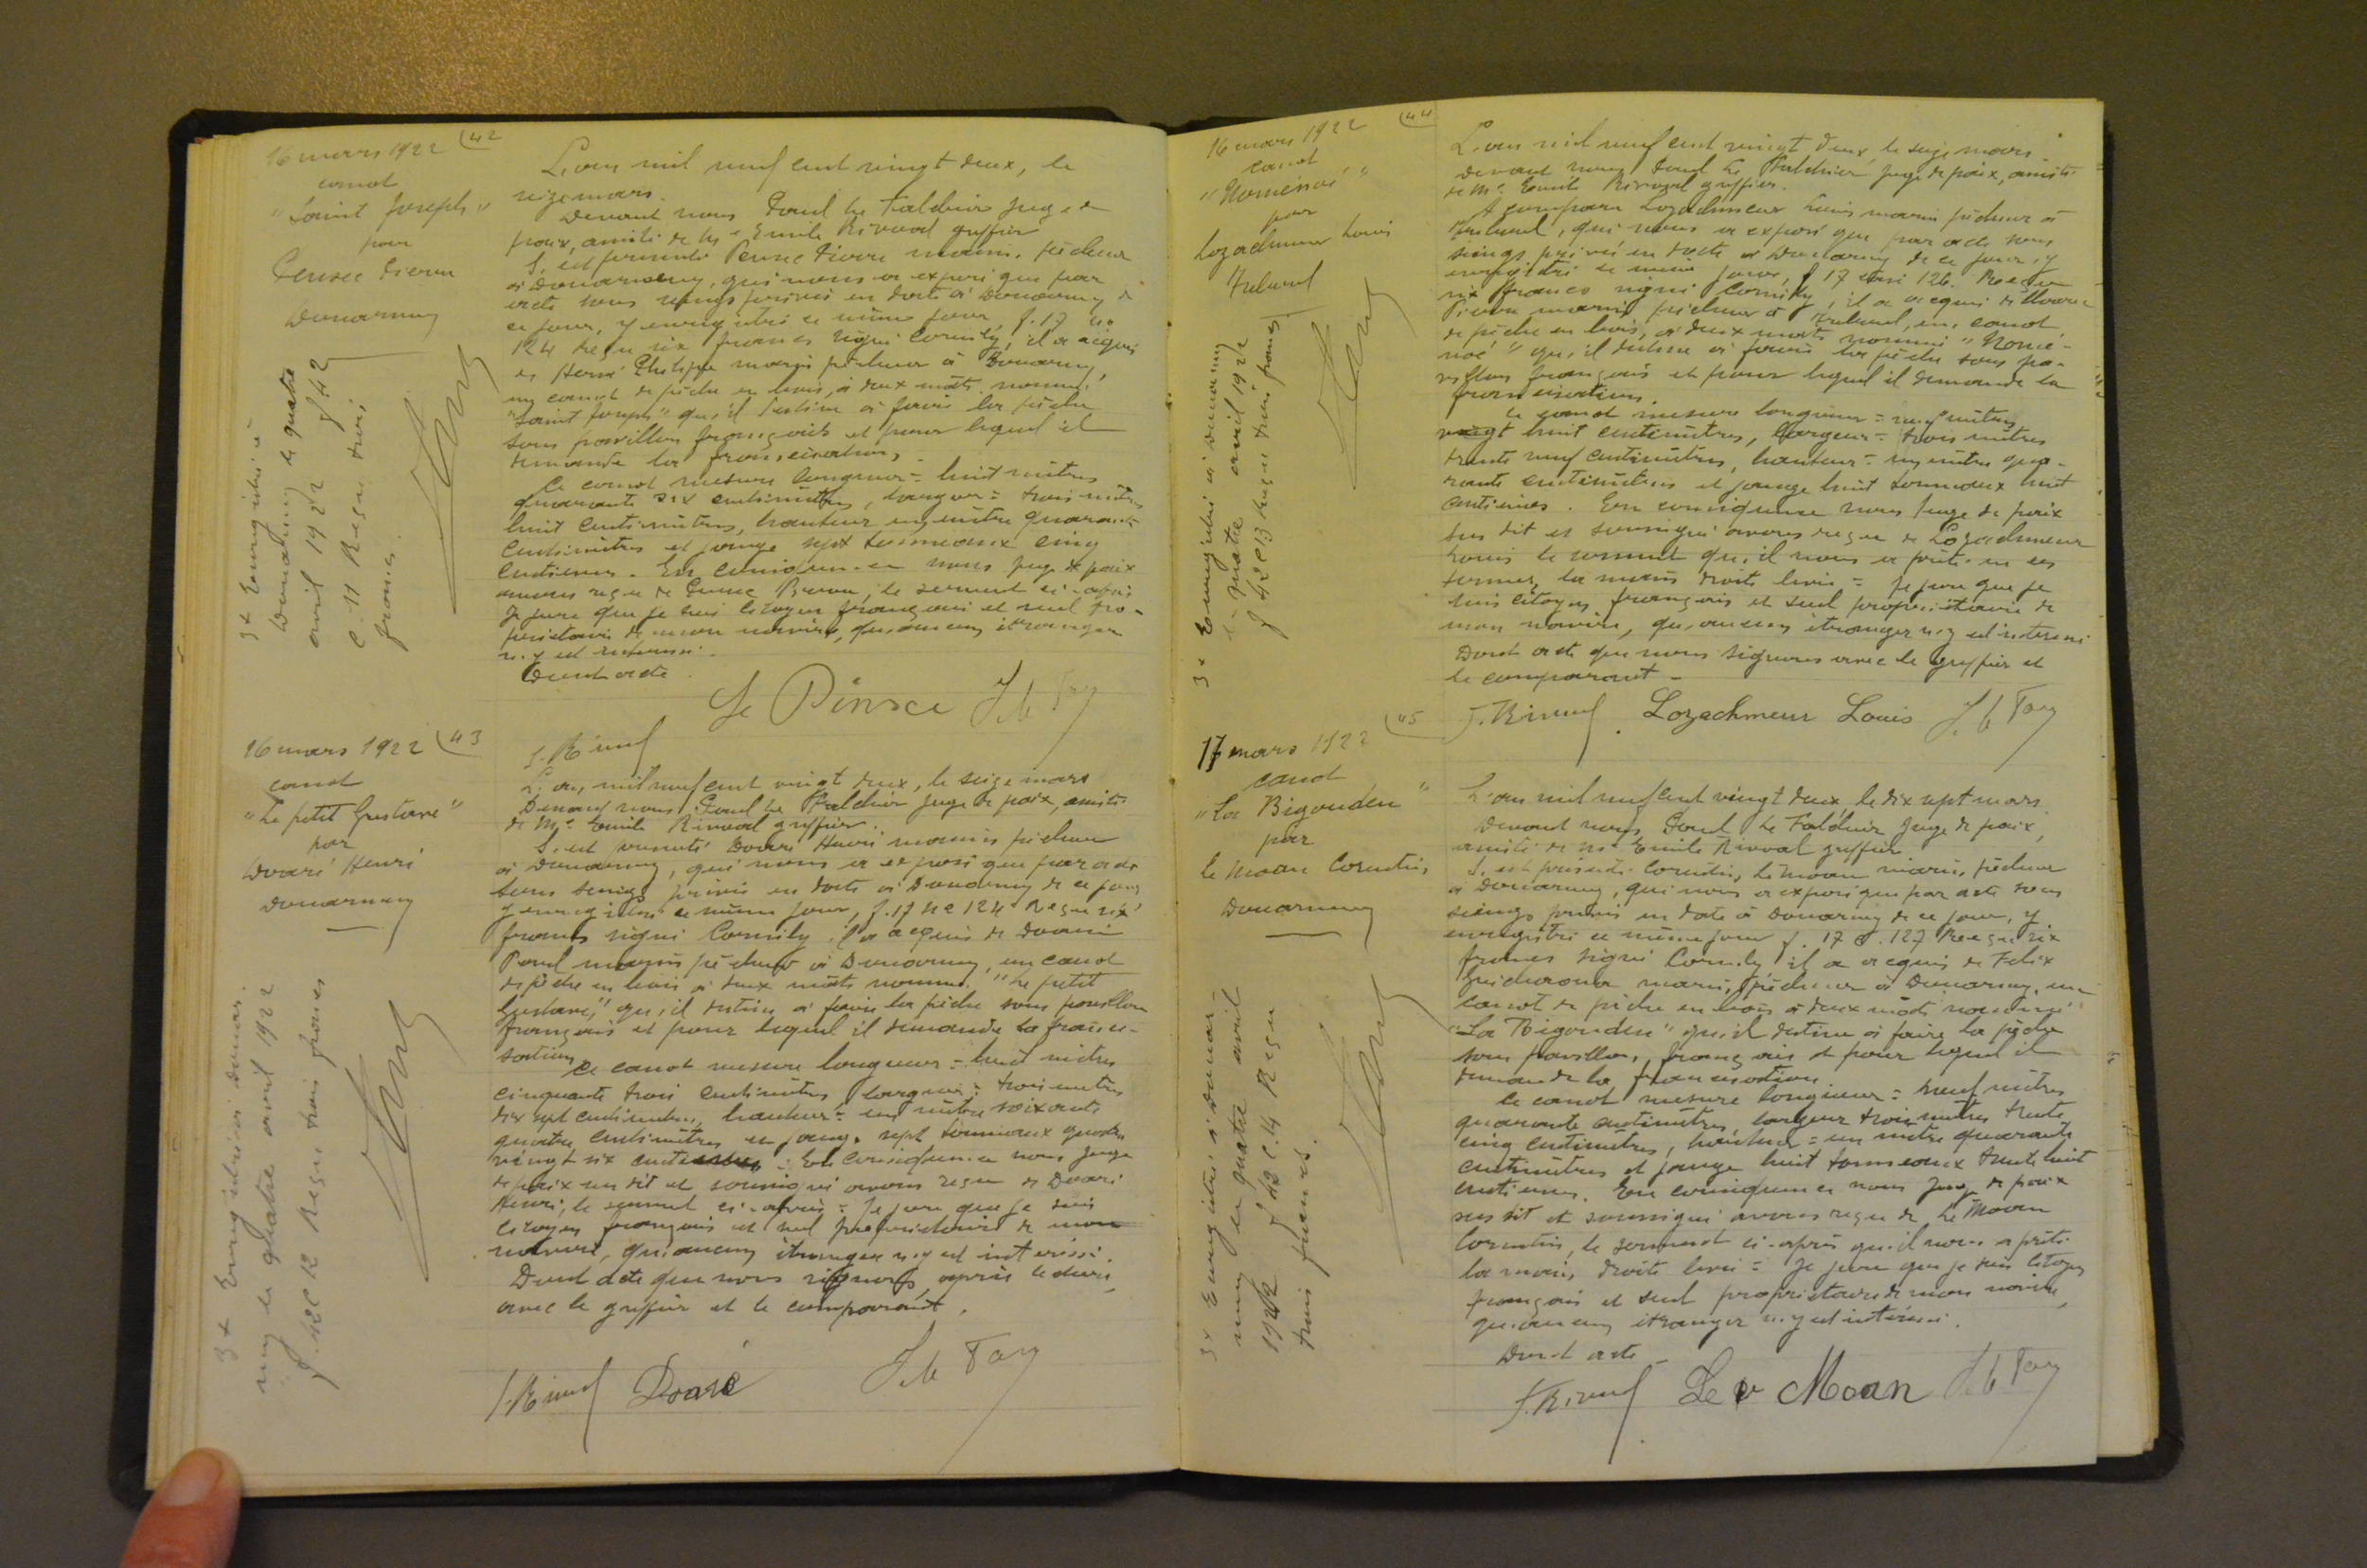 16 mars 1922 (42
canot
"Saint Joseph"
par
Pensec Pierre
Douarnenez
3 x Enregistré à
Douarnenez le quatre
avril 1922 f 42
c. 11 Reçu trois
francs.
L'an mil neuf cent vingt deux, le
seize mars.
Devant nous Paul Le juge de
paix, assisté de Me Emile Rivoal greffier
S'est présenté Pierre marin pêcheur
à Douarnenez, qui nous a exposé que par
acte sous seings privés en date à Douarnenez de
ce jour, y enregistré ce même jour f. 17 no
124 Reçu six francs signé Cornily, il a acquis
de Hervé Philippe marin pêcheur à Douarnenez,
un canot de pêche en bois, à deux mâts, nommé
"Saint Joseph" qu'il destine à faire la pêche
sous pavillon français et pour lequel il
demande la francisation.
Ce canot mesure longueur = huit mètres
quarante six centimètres, largeur = trois mètres
huit centimètres, hauteur un mètre quarante
centimètres et jauge sept tonneaux cinq
centièmes. En conséquence nous juge de paix
avons reçu de Pierre, le serment ci-après
Je jure que je suis citoyen français et seul pro-
priétaire de mon navire, qu'aucun étranger
n'y est intéressé.
Dont acte.
Le Pensec
16 mars 1922 (43
canot
"Le petit Gustave"
par
Douaré Henri
Douarnenez
3 x Enregistré à Douar-
nenez le quatre avril 1922
f. 42 C 12 Reçu trois francs
L'an mil neuf cent vingt deux, le seize mars
Devant nous Paul Le juge de paix, assisté
de Me Emile Rivoal greffier.
S'est présenté Douaré Henri marin pêcheur
à Douarnenez, qui nous a exposé que par acte
sous seings privés en date à Douarnenez de ce jour
y enregistré ce même jour, f. 17 no 124 Reçu six
francs signé Cornily il a acquis de Douaré
Paul marin pêcheur à Douarnenez, un canot
de pêche en bois à deux mâts nommé "Le petit
Gustave", qu'il destine à faire la pêche sous pavillon
français et pour lequel il demande la franci-
sation.
Ce canot mesure longueur = huit mètres
cinquante trois centimètres largeur = trois mètres
dix sept centimètres, hauteur = un mètre soixante
quatre centimètres et jauge sept tonneaux quatre
vingt six centièmes. En conséquence nous juge
de paix sus dit et soussigné avons reçu de Douaré
Henri, le serment ci-après = Je jure que je suis
citoyen français et seul propriétaire de mon
navire, qu'aucun étranger n'y est intéressé.
Dont acte que nous signons, après lecture,
avec le greffier et le comparant.
Douaré
16 mars 1922 (44
canot
"Nominoé"
par
Lozachmeur Louis
Tréboul
3 x Enregistré à Douarnenez
le quatre avril 1922
f 42 C 13 Reçu trois francs
L'an mil neuf cent vingt deux, le seize mars.
Devant nous Paul Le juge de paix, assisté
de Me Emile Rivoal greffier.
A comparu Lozachmeur Louis marin pêcheur à
Tréboul, qui nous a exposé que par acte sous
seings privés en date à Douarnenez de ce jour, y
enregistré ce même jour, f 17 126. Reçu
six francs signé Cornily, il a acquis de
Pierre marin pêcheur à Tréboul, un canot
de pêche en bois, à deux mâts nommé "Nomi-
noé" qu'il destine à faire la pêche sous pa-
villon français et pour lequel il demande la
francisation.
Ce canot mesure longueur = neuf mètres
vingt huit centimètres, largeur = trois mètres
trente neuf centimètres, hauteur = un mètre qua-
rante centimètres et jauge huit tonneaux huit
centièmes. En conséquence nous juge de paix
sus dit et soussigné avons reçu de Lozachmeur
Louis le serment qu'il nous a prêté en ces
termes, la main droite levée = Je jure que je
suis citoyen français et seul propriétaire de
mon navire, qu'aucun étranger n'y est intéressé
Dont acte que nous signons avec le greffier et
le comparant -
Lozachmeur Louis
17 mars 1922 (45
canot
"La Bigouden"
par
Le Moan Corentin
Douarnenez
3 x Enregistré à Douar-
nenez le quatre avril
1922 f 42 c. 14 Reçu
trois francs.
L'an mil neuf cent vingt deux, le dix sept mars
Devant nous, Paul Le juge de paix,
assisté de Me Emile Rivoal greffier
S'est présenté Corentin, Le Moan marin, pêcheur
à Douarnenez, qui nous a exposé que par acte sous
seings privés en date à Douarnenez de ce jour, y
enregistré ce même jour f. 17 c. 127 Reçu six
francs signé Cornily il a acquis de Felix
marin, pêcheur à Douarnenez, un
canot de pêche en bois à deux mâts nommé
"La Bigouden" qu'il destine à faire la pêche
sous pavillon français et pour lequel il
demande la francisation.
Ce canot mesure longueur = neuf mètres
quarante centimètres, largeur trois mètres trente
cinq centimètres, hauteur = un mètre quarante
centimètres et jauge huit tonneaux trente huit
centièmes. En conséquence nous juge de paix
sus dit et soussigné avons reçu de Le Moan
Corentin, le serment ci-après qu'il nous a prêté
la main droite levée = Je jure que je suis citoyen
français et seul propriétaire de mon navire,
qu'aucun étranger n'y est intéressé.
Dont acte -
Le Moan